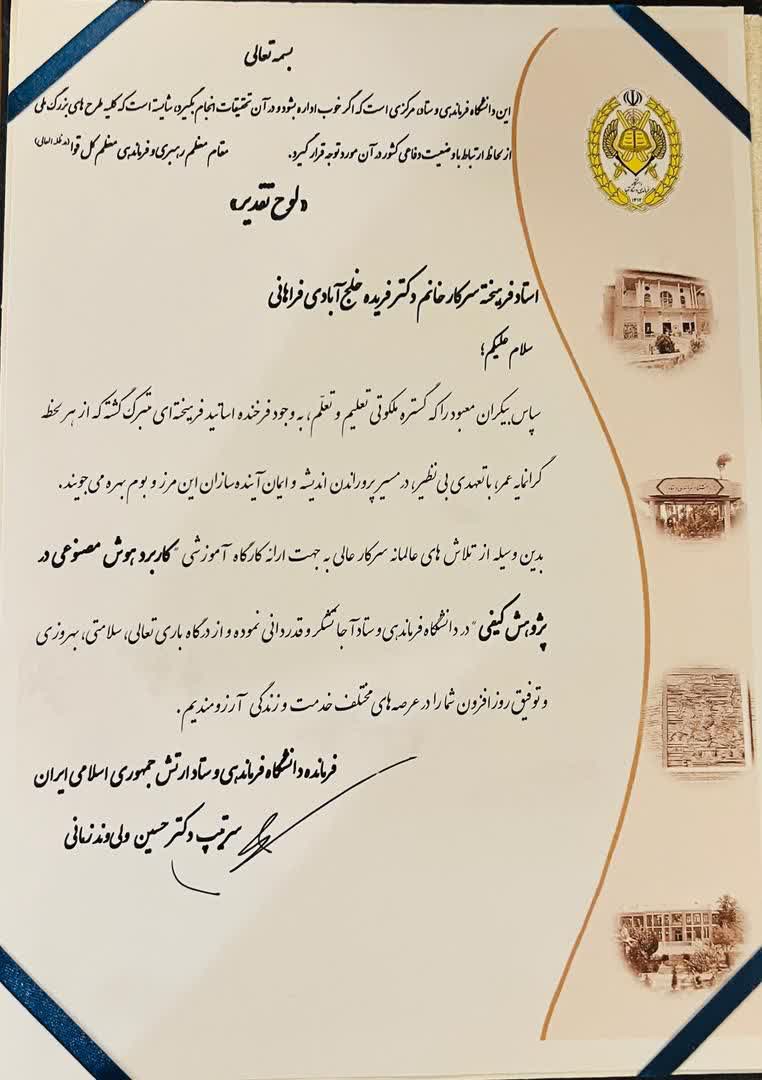 بسمه تعالی
این دانشگاه فرماندهی و ستاد، مرکزی است که اگر خوب اداره بشود و در آن تحقیقات انجام بگیرد، شایسته است که کلیه طرح های بزرگ ملی
از لحاظ ارتباط با وضعیت دفاعی کشور در آن مورد توجه قرار گیرد. مقام معظم رهبری و فرماندهی معظم کل قوا (مدظله العالی)
«لوح تقدیر»
استاد فرهیخته سرکار خانم دکتر فریده خلج آبادی فراهانی
سلام علیکم؛
سپاس بیکران معبود را که گستره ملکوتی تعلیم و تعلّم، به وجود فرخنده اساتید فرهیخته ای متبرک گشته که از هر لحظه
گرانمایه عمر، با تعهدی بی نظیر، در مسیر پروراندن اندیشه و ایمان آینده سازان این مرز و بوم بهره می جویند.
بدین وسیله از تلاش های عالمانه سرکار عالی به جهت ارائه کارگاه آموزشی "کاربرد هوش مصنوعی در
پژوهش کیفی" در دانشگاه فرماندهی و ستاد آجا تشکر و قدردانی نموده و از درگاه باری تعالی، سلامتی، بهروزی
و توفیق روز افزون شما را در عرصه های مختلف خدمت و زندگی آرزومندیم.
فرمانده دانشگاه فرماندهی و ستاد ارتش جمهوری اسلامی ایران
سرتیپ دکتر حسین ولی وند زمانی